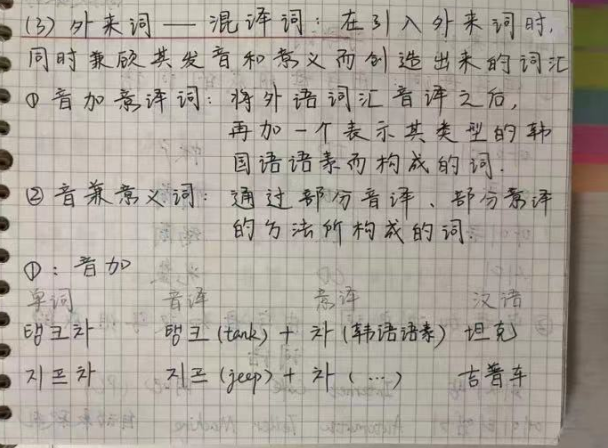 (3) 外来词 —— 混译词：在引入外来词时,
同时兼顾其发音和意义而创造出来的词汇
① 音加意译词：将外语词汇音译之后,
再加一个表示其类型的韩
国语语素而构成的词.
② 音兼意义词：通过部分音译、部分意译
的方法所构成的词.
①：音加
单词 音译 意译 汉语
탱크차 탱크 (tank) + 차 (韩语语素) 坦克
지프차 지프 (jeep) + 차 (...) 吉普车